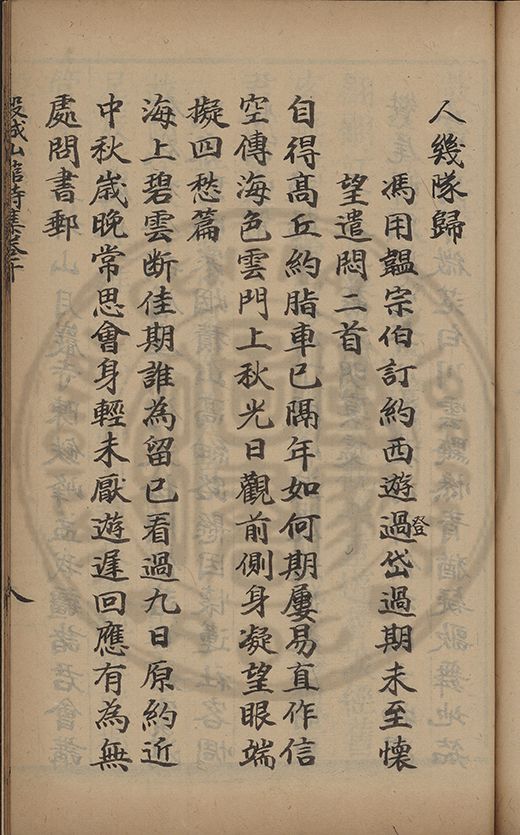 人幾隊歸
馮用韞宗伯訂約西遊過登岱過期未至懷
望遣悶二首
自得高丘約脂車已隔年如何期屢易直作信
空傳海色雲門上秋光日觀前側身凝望眼端
擬四愁篇
海上碧雲斷佳期誰為留已看過九日原約近
中秋歲晚常思會身輕未厭遊遲回應有為無
處問書郵
穀城山館詩集卷十
八